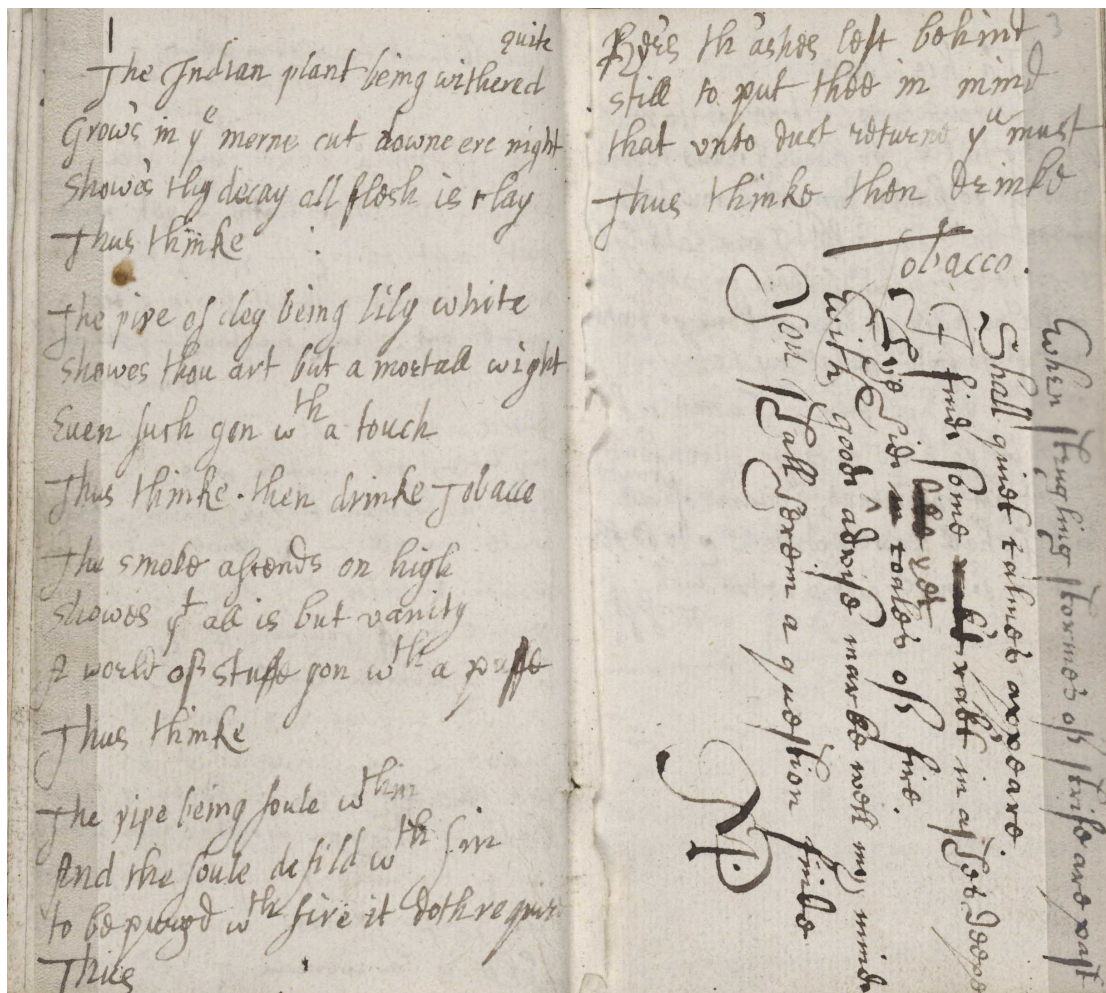 1
quite
The Indian plant being withered
Grows in yᵉ morne cut downe ere night
Showes thy decay all flesh is clay
Thus thinke
The pipe of cley being lily white
Showes thou art but a mortall wight
Even such gon wᵗʰ a touch
Thus thinke then drinke Tobacco
The smoke asends on high
Showes yᵗ all is but vanity
A world off stuffe gon wᵗʰ a puffe
Thus thinke
The pipe being foule wᵗʰin
And the soule defild wᵗʰ sin
to be purgd wᵗʰ fire it doth requir
Thus
3
Her's th'ashes left behind
still to put thee in mind
that unto dust returne yᵘ must
Thus thinke then drinke
Tobacco.
When strugling stormes off strife are past
Shall quiet calmes appeare.
I find some rakt in ashes deepe
lie yet
hid coales off fire.
With good advise marke well my minde
You shall therein a question finde